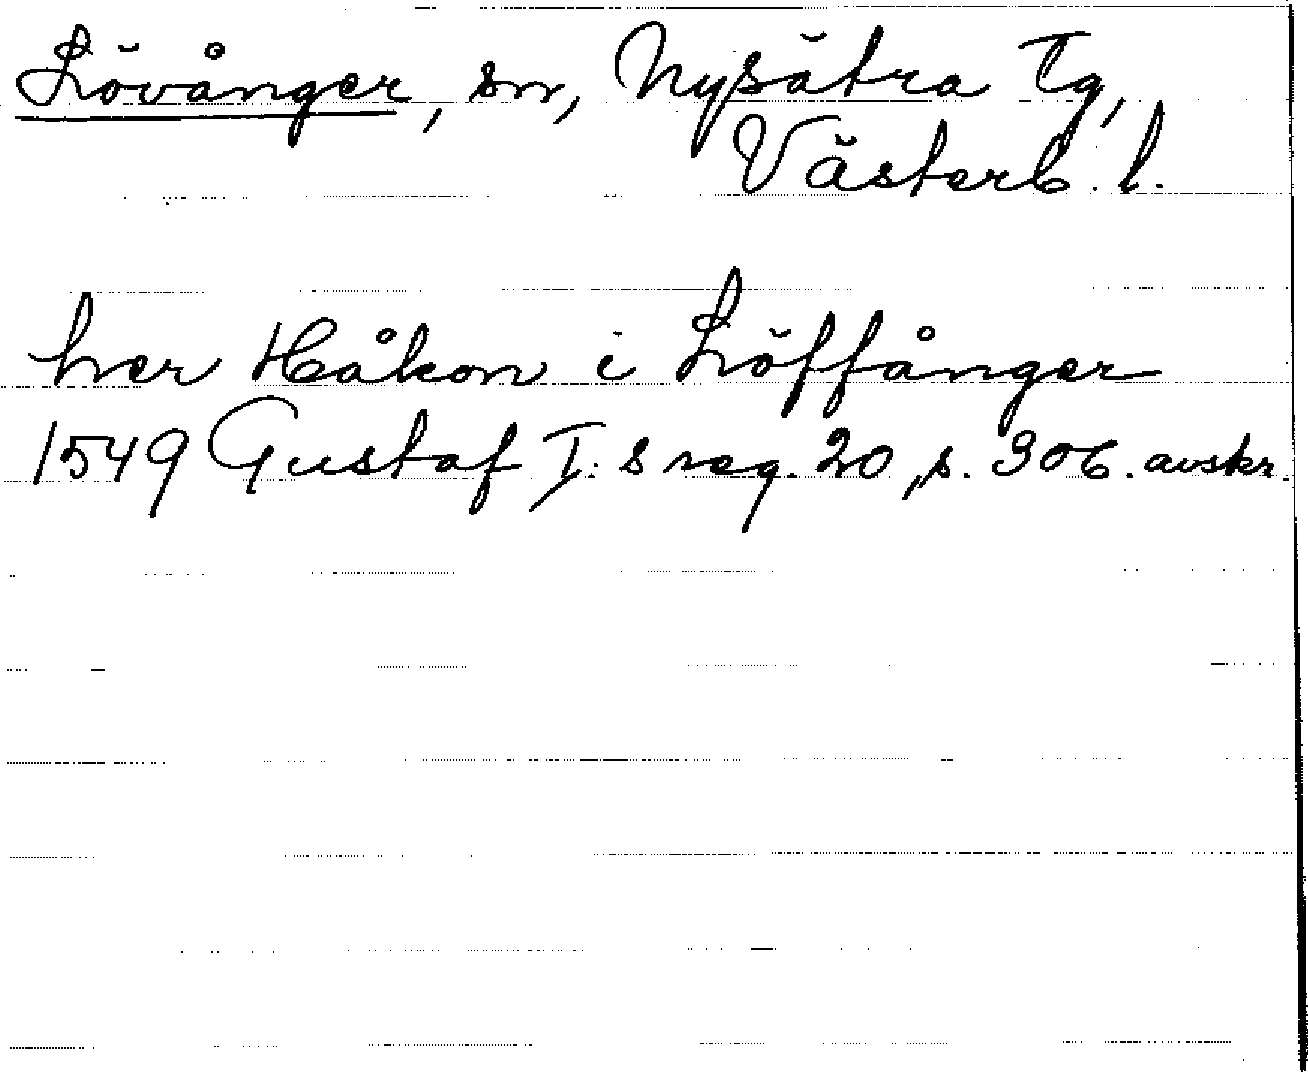 Lövånger, sn, Nysätra tg,
Västerb. l.
her Håkon i Löffånger
1549 Gustaf I:s reg. 20, s. 306. avskr.